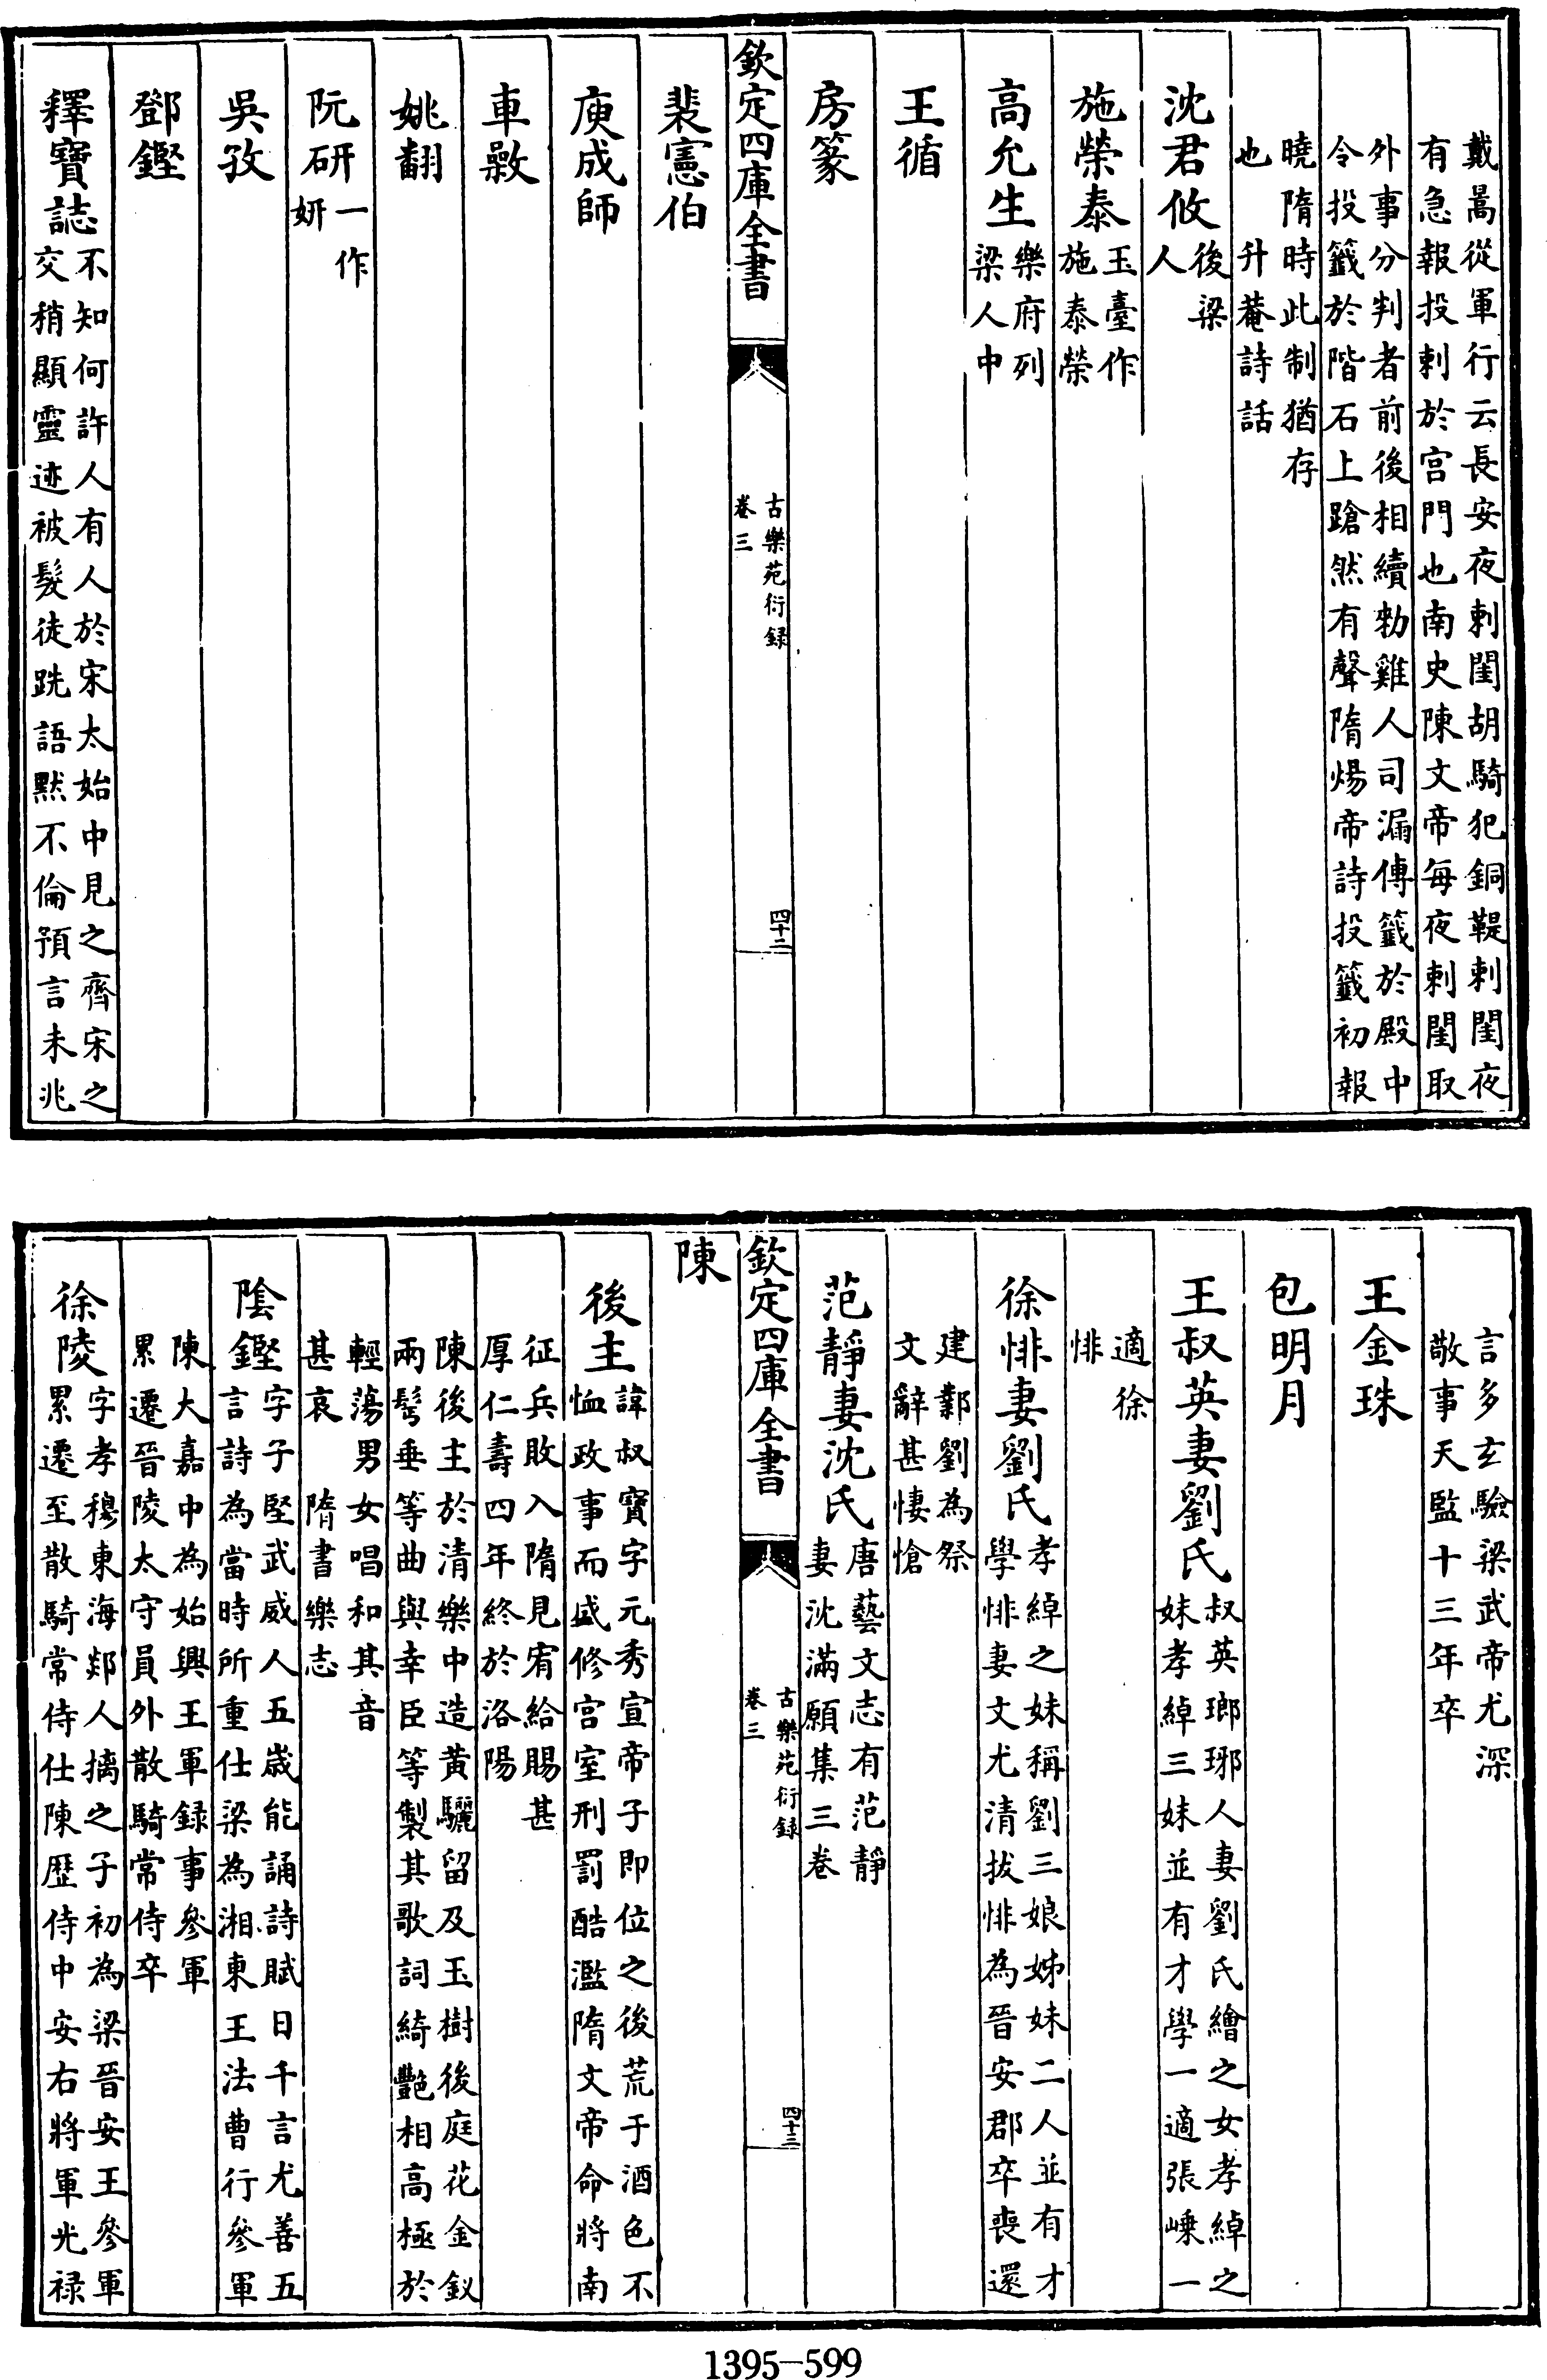 戴暠從軍行云長安夜刺閨胡騎犯銅鞮刺閨夜
有急報投刺於宫門也南史陳文帝每夜刺閨取
外事分判者前後相續勑雞人司漏傳籤於殿中
令投籤於階石上蹌然有聲隋煬帝詩投籤初報
曉隋時此制猶存
也　升菴詩話
沈君攸後梁
人
施榮泰玉臺作
施泰榮
高允生樂府列
梁人中
王循
房篆
欽定四庫全書
古樂苑衍録
卷三
四十二
裴憲伯
庾成師
車𢾭
姚翻
阮研一作
妍
吳孜
鄧鏗
釋寶誌不知何許人有人於宋太始中見之齊宋之
交稍顯靈迹被髮徒跣語默不倫預言未兆
言多玄驗梁武帝尤深
敬事天監十三年卒
王金珠
包明月
王叔英妻劉氏叔英瑯琊人妻劉氏繪之女孝綽之
妹孝綽三妹並有才學一適張嵊一
適徐
悱
徐悱妻劉氏孝綽之妹稱劉三娘姊妹二人並有才
學悱妻文尤清拔悱為晉安郡卒喪還
建鄴劉為祭
文辭甚悽愴
范靜妻沈氏唐藝文志有范靜
妻沈滿願集三卷
欽定四庫全書
古樂苑衍録
卷三
四十三
陳
後主諱叔寶字元秀宣帝子即位之後荒于酒色不
恤政事而盛修宫室刑罰酷濫隋文帝命將南
征兵敗入隋見宥給賜甚
厚仁壽四年終於洛陽
陳後主於清樂中造黃驪留及玉樹後庭花金釵
兩髩垂等曲與幸臣等製其歌詞綺艷相高極於
輕蕩男女唱和其音
甚哀　隋書樂志
陰鏗字子堅武威人五歲能誦詩賦日千言尤善五
言詩為當時所重仕梁為湘東王法曹行參軍
陳大嘉中為始興王軍録事參軍
累遷晉陵太守員外散騎常侍卒
徐陵字孝穆東海郯人摛之子初為梁晉安王參軍
累遷至散騎常侍仕陳歷侍中安右將軍光禄
1395—599